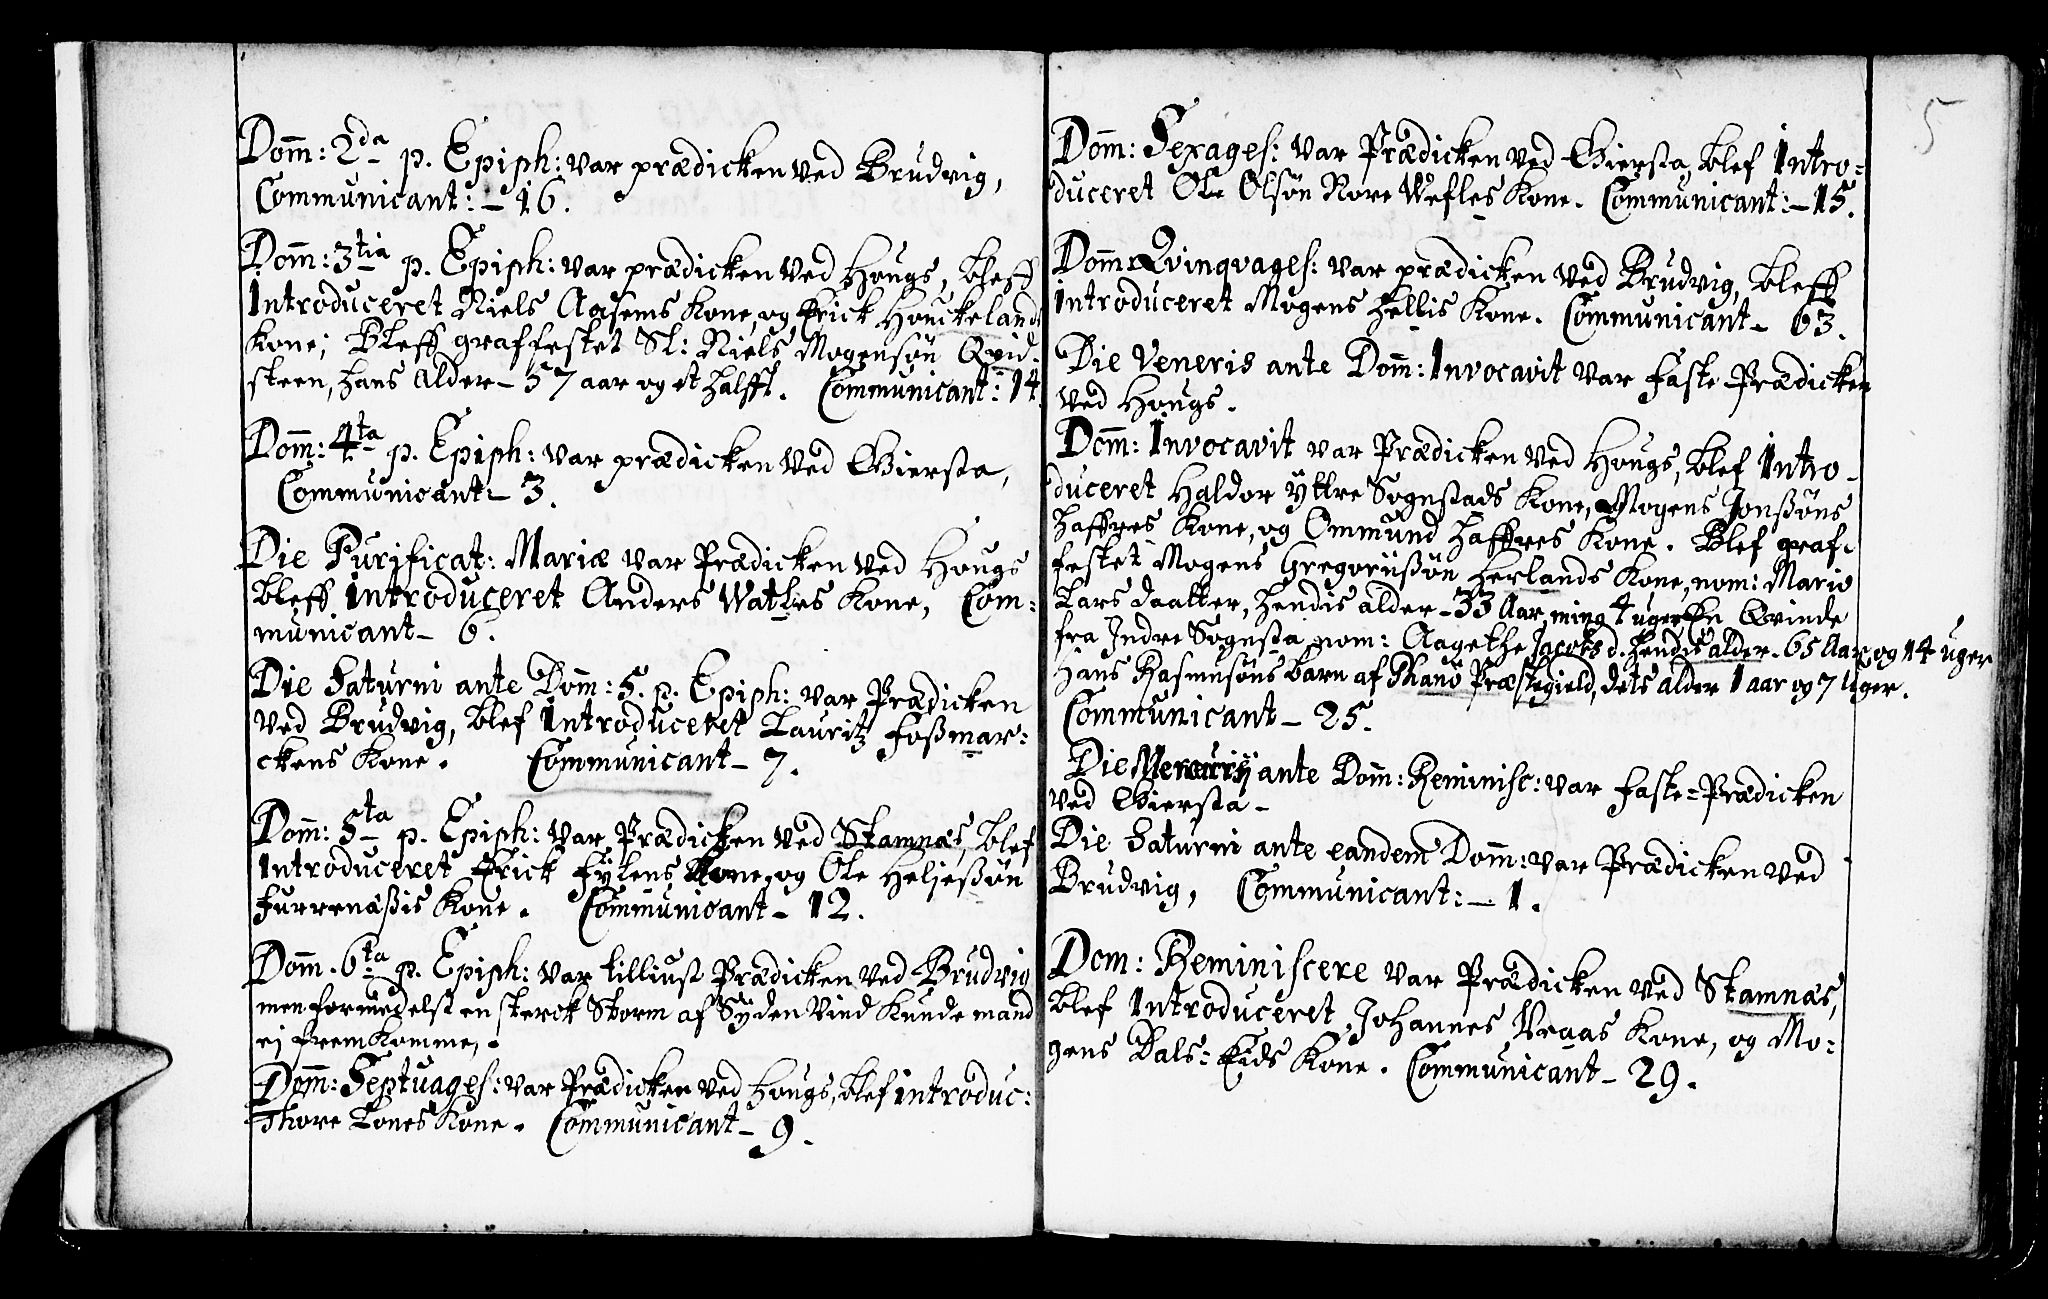 Dom̄: 2da p. Epiph: var prædicken ved Brudvig,
Communicant: - 16.
Dom̄: 3tia p. Epiph: var prædicken ved Hougs, bleff
Introduceret Niels Aasems Kone, og Erick Houckelands
Kone; Bleff graffestet Sl: Niels Mogensøn Qvid-
steen, hans alder - 57 aar og et halfft. Communicant: 14.
Dom̄: 4ta p. Epiph: var prædicken ved Gierstа,
Communicant - 3.
Die Purificat: Mariæ var Prædicken ved Hougs
bleff Introduceret Anders Watles Kone, Com-
municant - 6.
Die Saturni ante Dom̄: 5. p. Epiph: var Prædicken
ved Brudvig, blef Introduceret Lauritz Foßmar-
ckens Kone. Communicant - 7.
Dom̄: 5ta p. Epiph: var Prædicken ved Stamnæs, blef
Introduceret Erick Fylens Kone, og Ole Heljesßøn
Furrenæßis Kone. Communicant - 12.
Dom̄. 6ta p. Epiph: var tilliust Prædicken ved Brudvig
men formedelst en sterck Storm af Syden Vind kunde mand
ej fremkomme.
Dom̄: Septuages: var Prædicken ved Hougs, blef introduc:
Thore Lones Kone. Communicant - 9.
5
Dom̄: Sexages: var Prædicken ved Giersta, blef Intro-
duceret Ole Olsøn Nore Wefles Kone. Communicant: - 15.
Dom̄: Qvinqvages: var prædicken ved Brudvig, bleff
introduceret Mogens Hellis Kone. Communicant - 63.
Die Veneris ante Dom̄: Invocavit var Faste Prædicken
ved Hougs.
Dom̄: Invocavit var Prædicken ved Hougs, blef Intro-
duceret Haldor Yttre Sognstads Kone, Mogens Jonßøns
Haffres Kone, og Ommund Haffres Kone. Blef graf-
festet Mogens Gregoriißøn Herlands Kone, nom: Mario
Lars daatter, hendis alder - 33 Aar, ming 4 uger En Qvinde
fra Indre Sognsta nom: Aagethe Jacobs d. hendis alder - 65 Aar og 14 uger
Hans Rasmusøns barn af Phanö Præstegield, dets alder 1 aar og 7 uger.
Communicant - 25.
Die Mercurij ante Dom̄: Reminisc: var Faste-Prædicken
ved Giersta -
Die Saturni ante eandem Dom̄: var Prædicken ved
Brudvig, Communicant: - 1.
Dom: Reminiscere var Prædicken ved Stamnæs,
blef Introduceret Johannes Vraas Kone, og Mo-
gens Dals-Eids Kone. Communicant - 29.